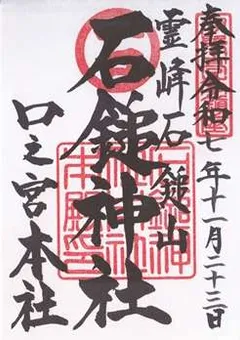 奉拝 令和七年十一月二十三日
霊峰石鎚山
石鎚神社
口之宮本社